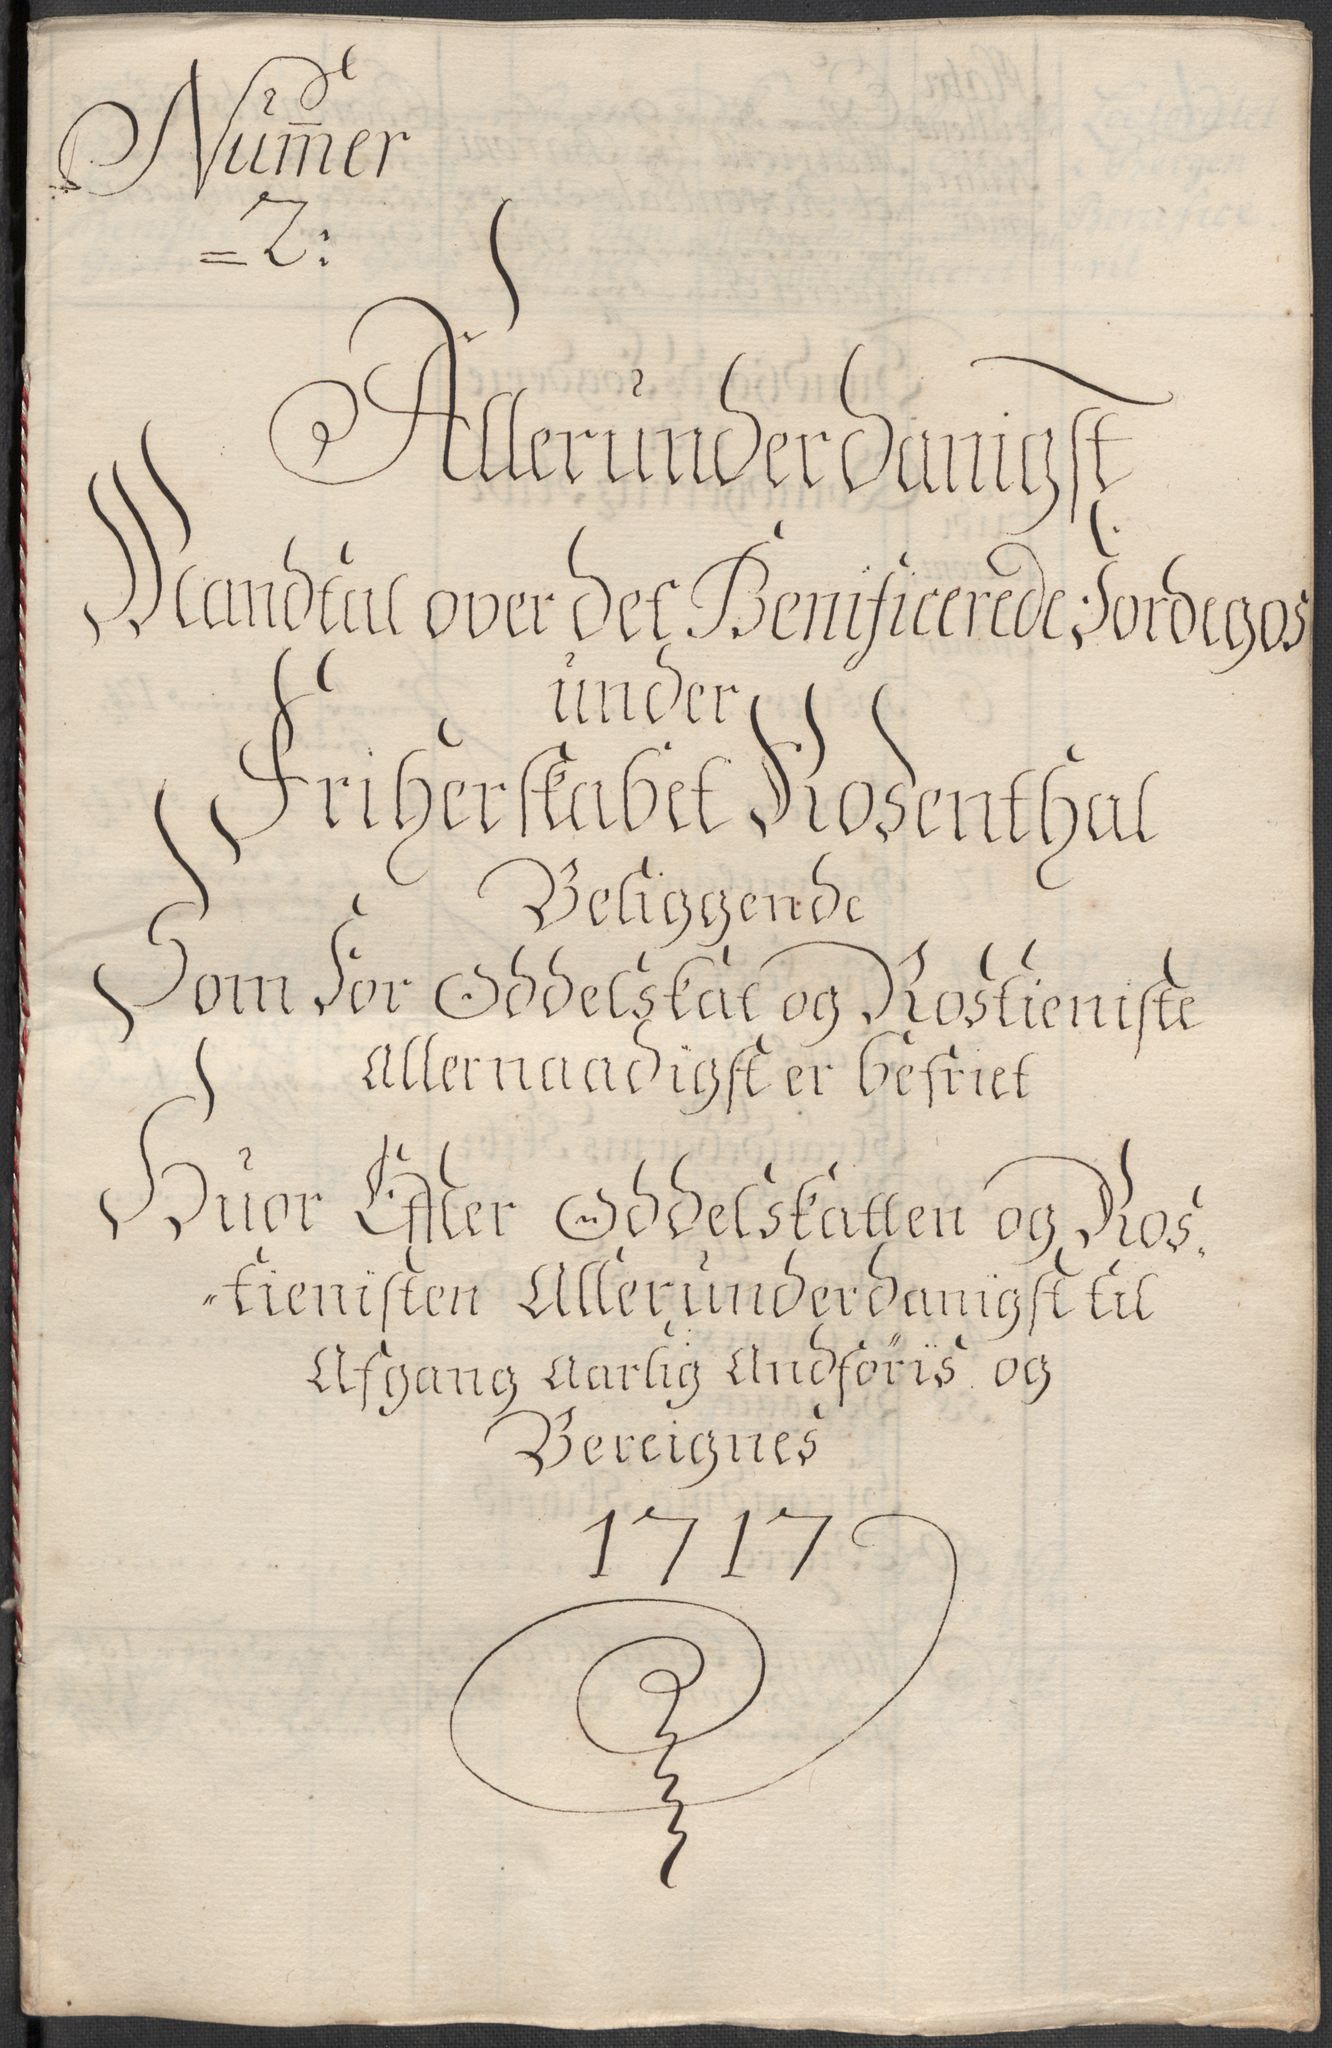 Num̅er
=2:
Allerunderdanigst
Mandtal over det Benificerede Jordegos
under
Friherskabet Rosenthal
Beliggende
Som for Oddelskat og Rostieniste
Allernaadigst er befriet
Huor Efter Oddelskatten og Ros„
„tienisten Allerunderdanigst til
Afgang Aarlig Andføris og
Bereignes
1717